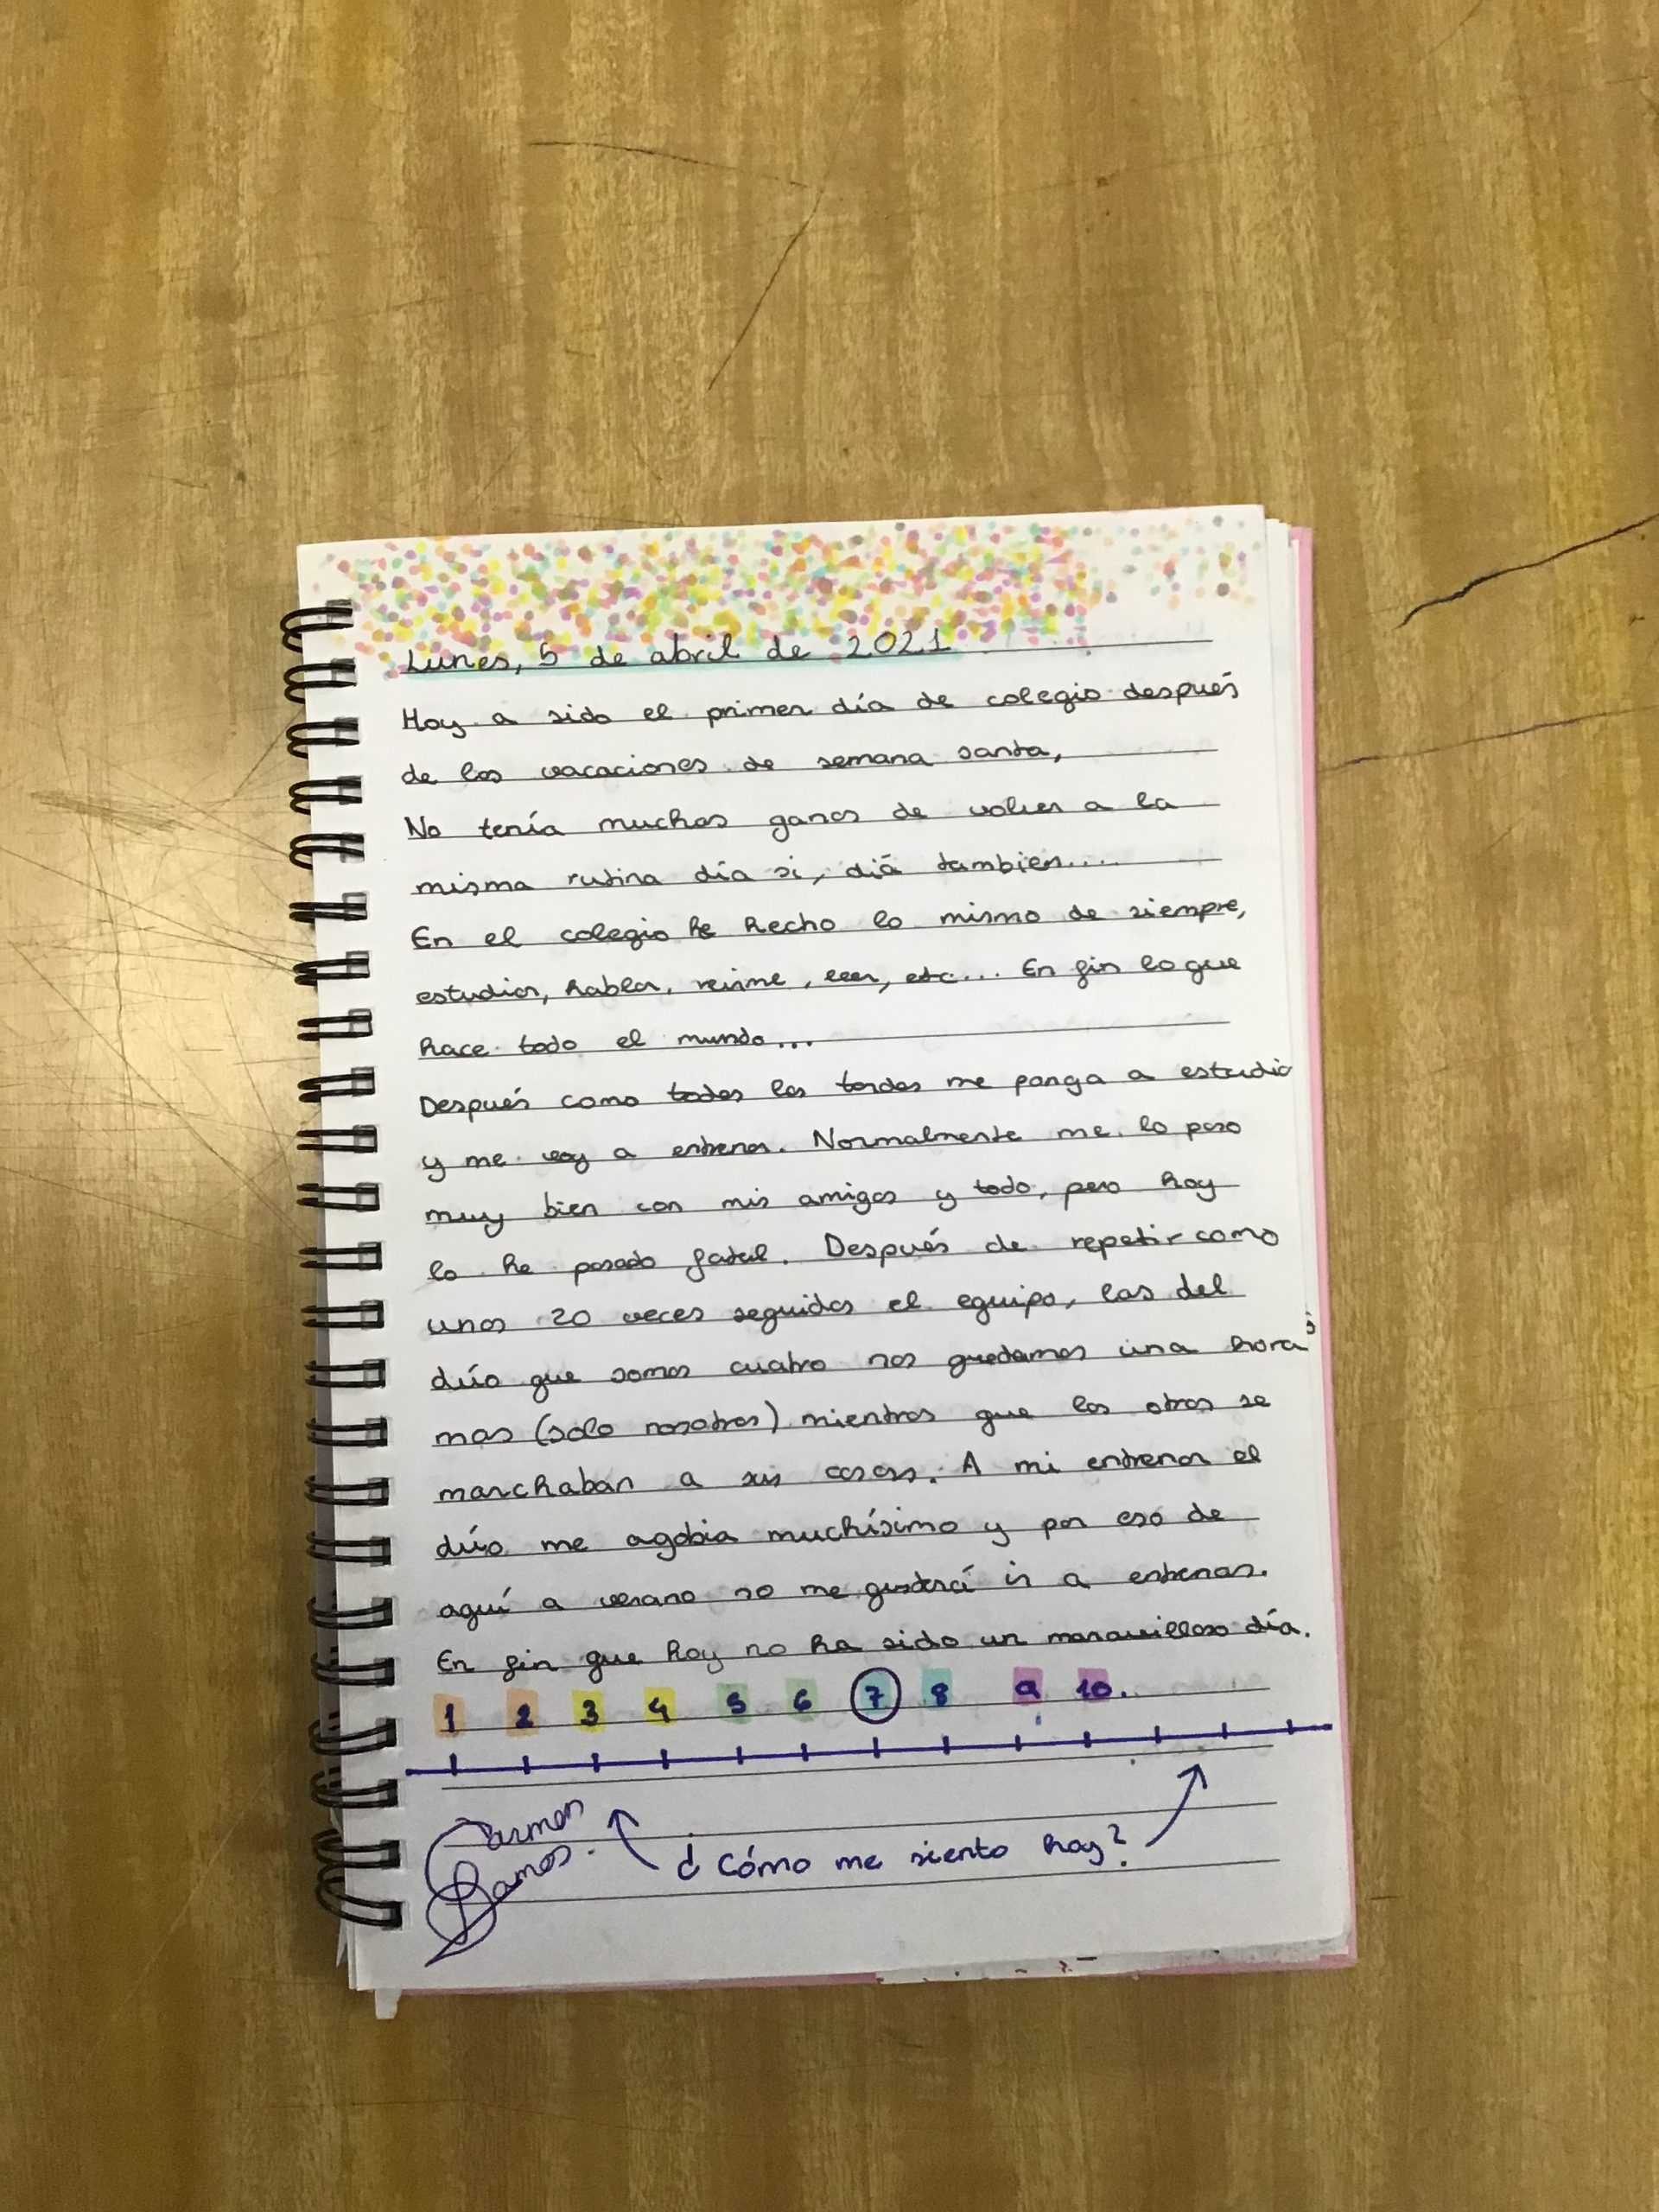 Lunes, 5 de abril de 2021
Hoy a sido el primer día de colegio después
de las vacaciones de semana santa,
No tenía muchas ganas de volver a la
misma rutina día si, diá tambien....
En el colegio he hecho lo mismo de siempre,
estudiar, hablar, reirme, leer, etc... En fin lo que
hace todo el mundo...
Después como todas las tardes me ponga a estudia
y me voy a entrenar. Normalmente me lo paso
muy bien con mis amigas y todo, pero hoy
lo he pasado fatal. Después de repetir como
unas 20 veces seguidas el equipo, las del
dúo que somos cuatro nos quedamos una hora
mas (solo nosotras) mientras que las otras se
marchaban a sus casas. A mi entrenar el
dúo me agobia muchísimo y por eso de
aquí a verano no me gustará ir a entrenar.
En fin que hoy no ha sido un maravilloso día.
1 2 3 4 5 6 7 8 9 10.
¿Cómo me siento hoy?
Carmen
Ramos.